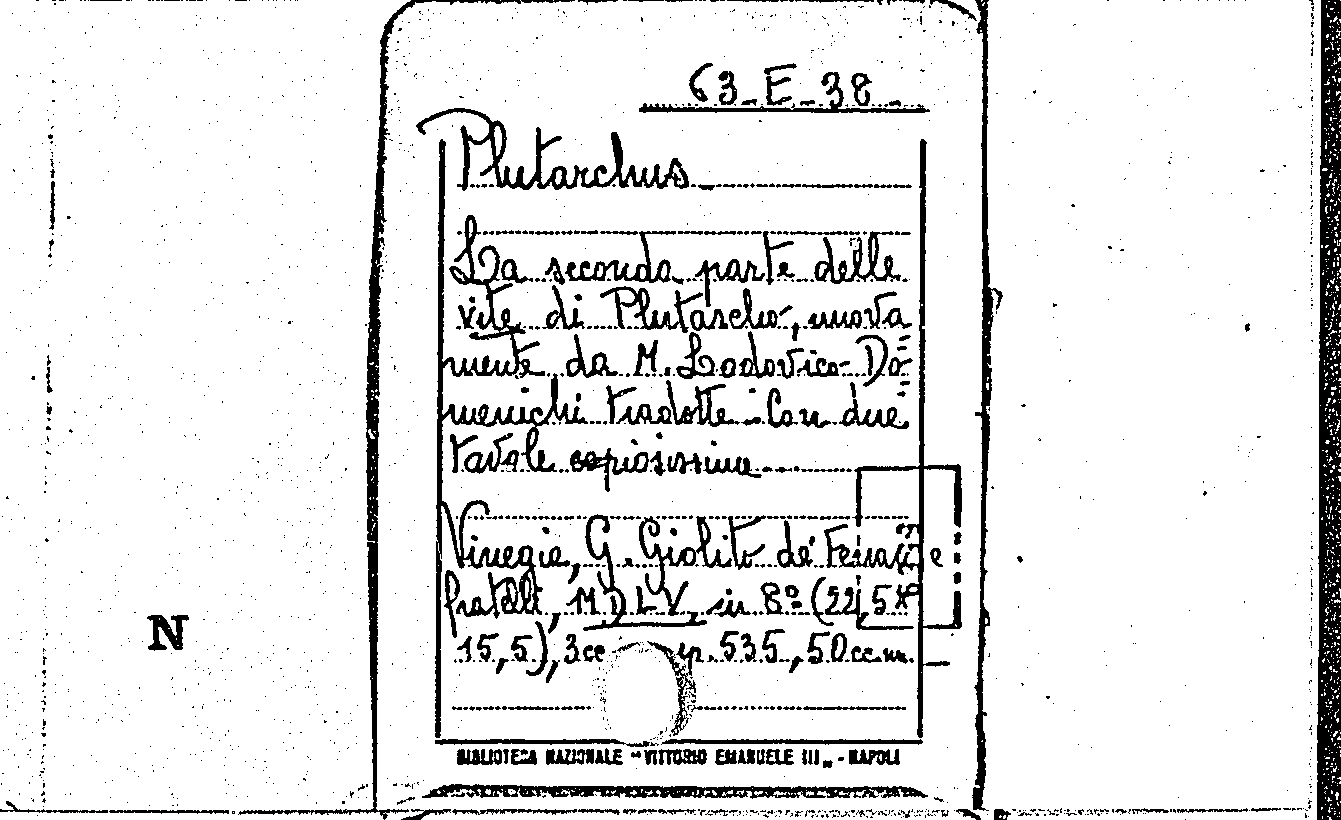 63-E-38
Plutarchus
La seconda parte delle
vite di Plutarcho, nuova
mente da M. Lodovico Do=
menichi tradotte. Con due
tavole copiosissime...
Vinegia, G. Giolito de' Ferrari e
fratelli, MDLV, in 8º (22,5x
15,5), 3cc pp. 535, 50cc.nn.
N
BIBLIOTECA NAZIONALE "VITTORIO EMANUELE III" - NAPOLI